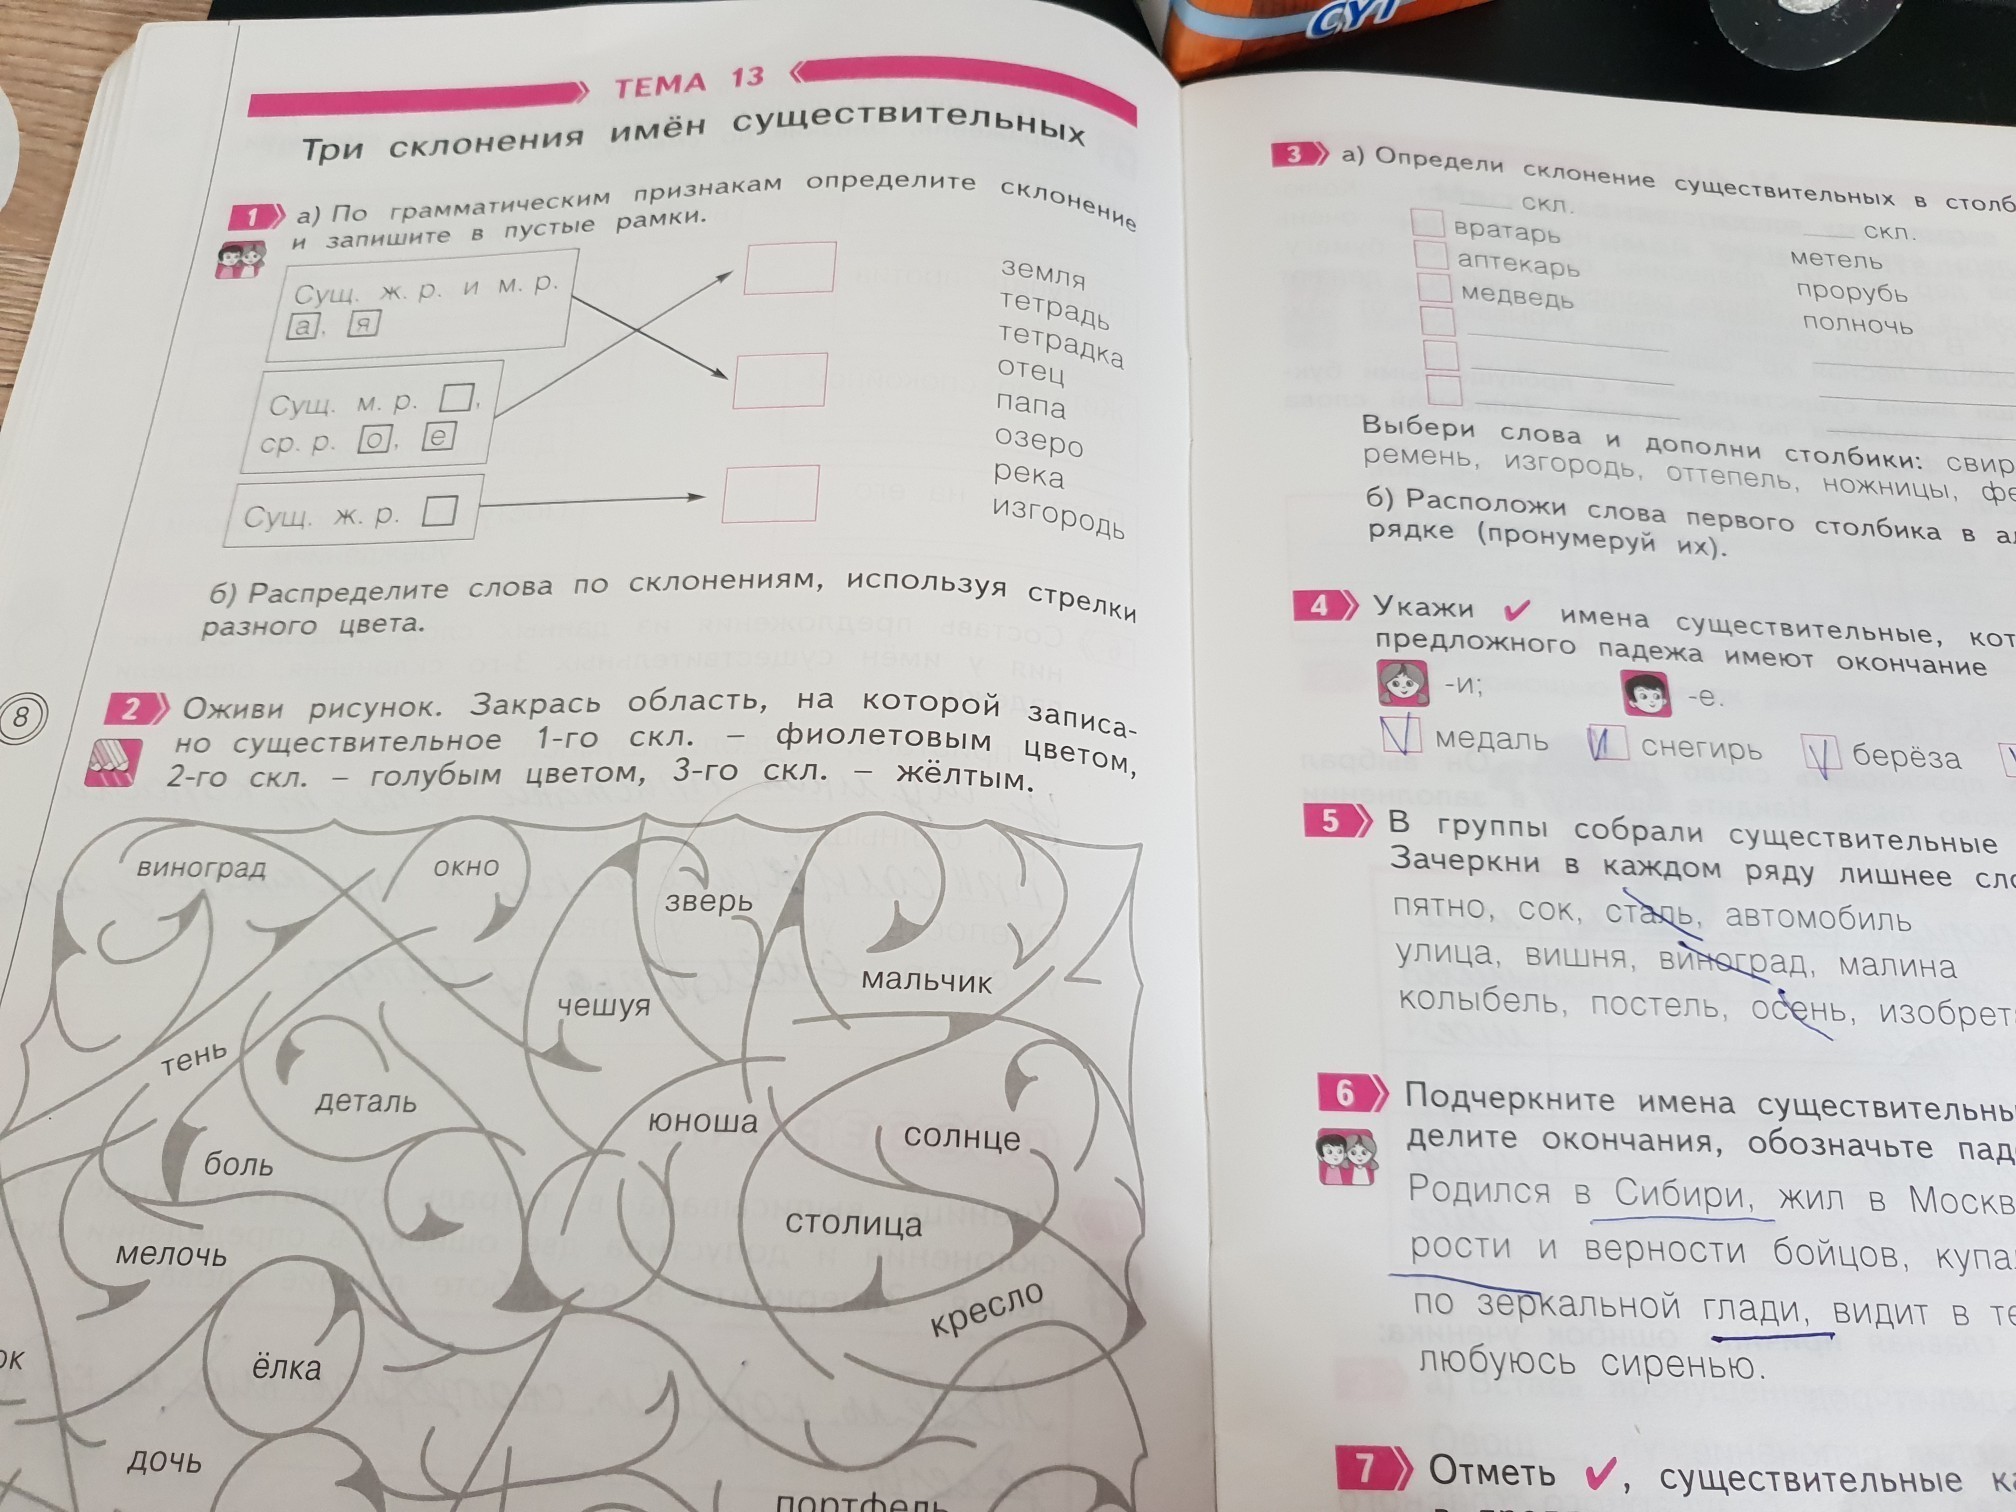 СУТ
ТЕМА 13
Три склонения имён существительных
1 а) По грамматическим признакам определите склонение
и запишите в пустые рамки.
Сущ. ж. р. и м. р.
а, я
Сущ. м. р. ,
ср. р. о, е
Сущ. ж. р.
земля
тетрадь
тетрадка
отец
папа
озеро
река
изгородь
б) Распределите слова по склонениям, используя стрелки
разного цвета.
8
2 Оживи рисунок. Закрась область, на которой записа-
но существительное 1-го скл. – фиолетовым цветом,
2-го скл. – голубым цветом, 3-го скл. – жёлтым.
виноград
окно
зверь
мальчик
чешуя
тень
деталь
юноша
солнце
боль
столица
мелочь
кресло
ок
ёлка
дочь
портфель
3 а) Определи склонение существительных в столб
____ скл.
____ скл.
вратарь
аптекарь
медведь
метель
прорубь
полночь
Выбери слова и дополни столбики: свир
ремень, изгородь, оттепель, ножницы, фе
б) Расположи слова первого столбика в ал
рядке (пронумеруй их).
4 Укажи ✓ имена существительные, кот
предложного падежа имеют окончание
-и; -е.
медаль снегирь берёза
5 В группы собрали существительные
Зачеркни в каждом ряду лишнее сло
пятно, сок, сталь, автомобиль
улица, вишня, виноград, малина
колыбель, постель, осень, изобрет
6 Подчеркните имена существительны
делите окончания, обозначьте пад
Родился в Сибири, жил в Москв
рости и верности бойцов, купа
по зеркальной глади, видит в те
любуюсь сиренью.
7 Отметь ✓, существительные ка